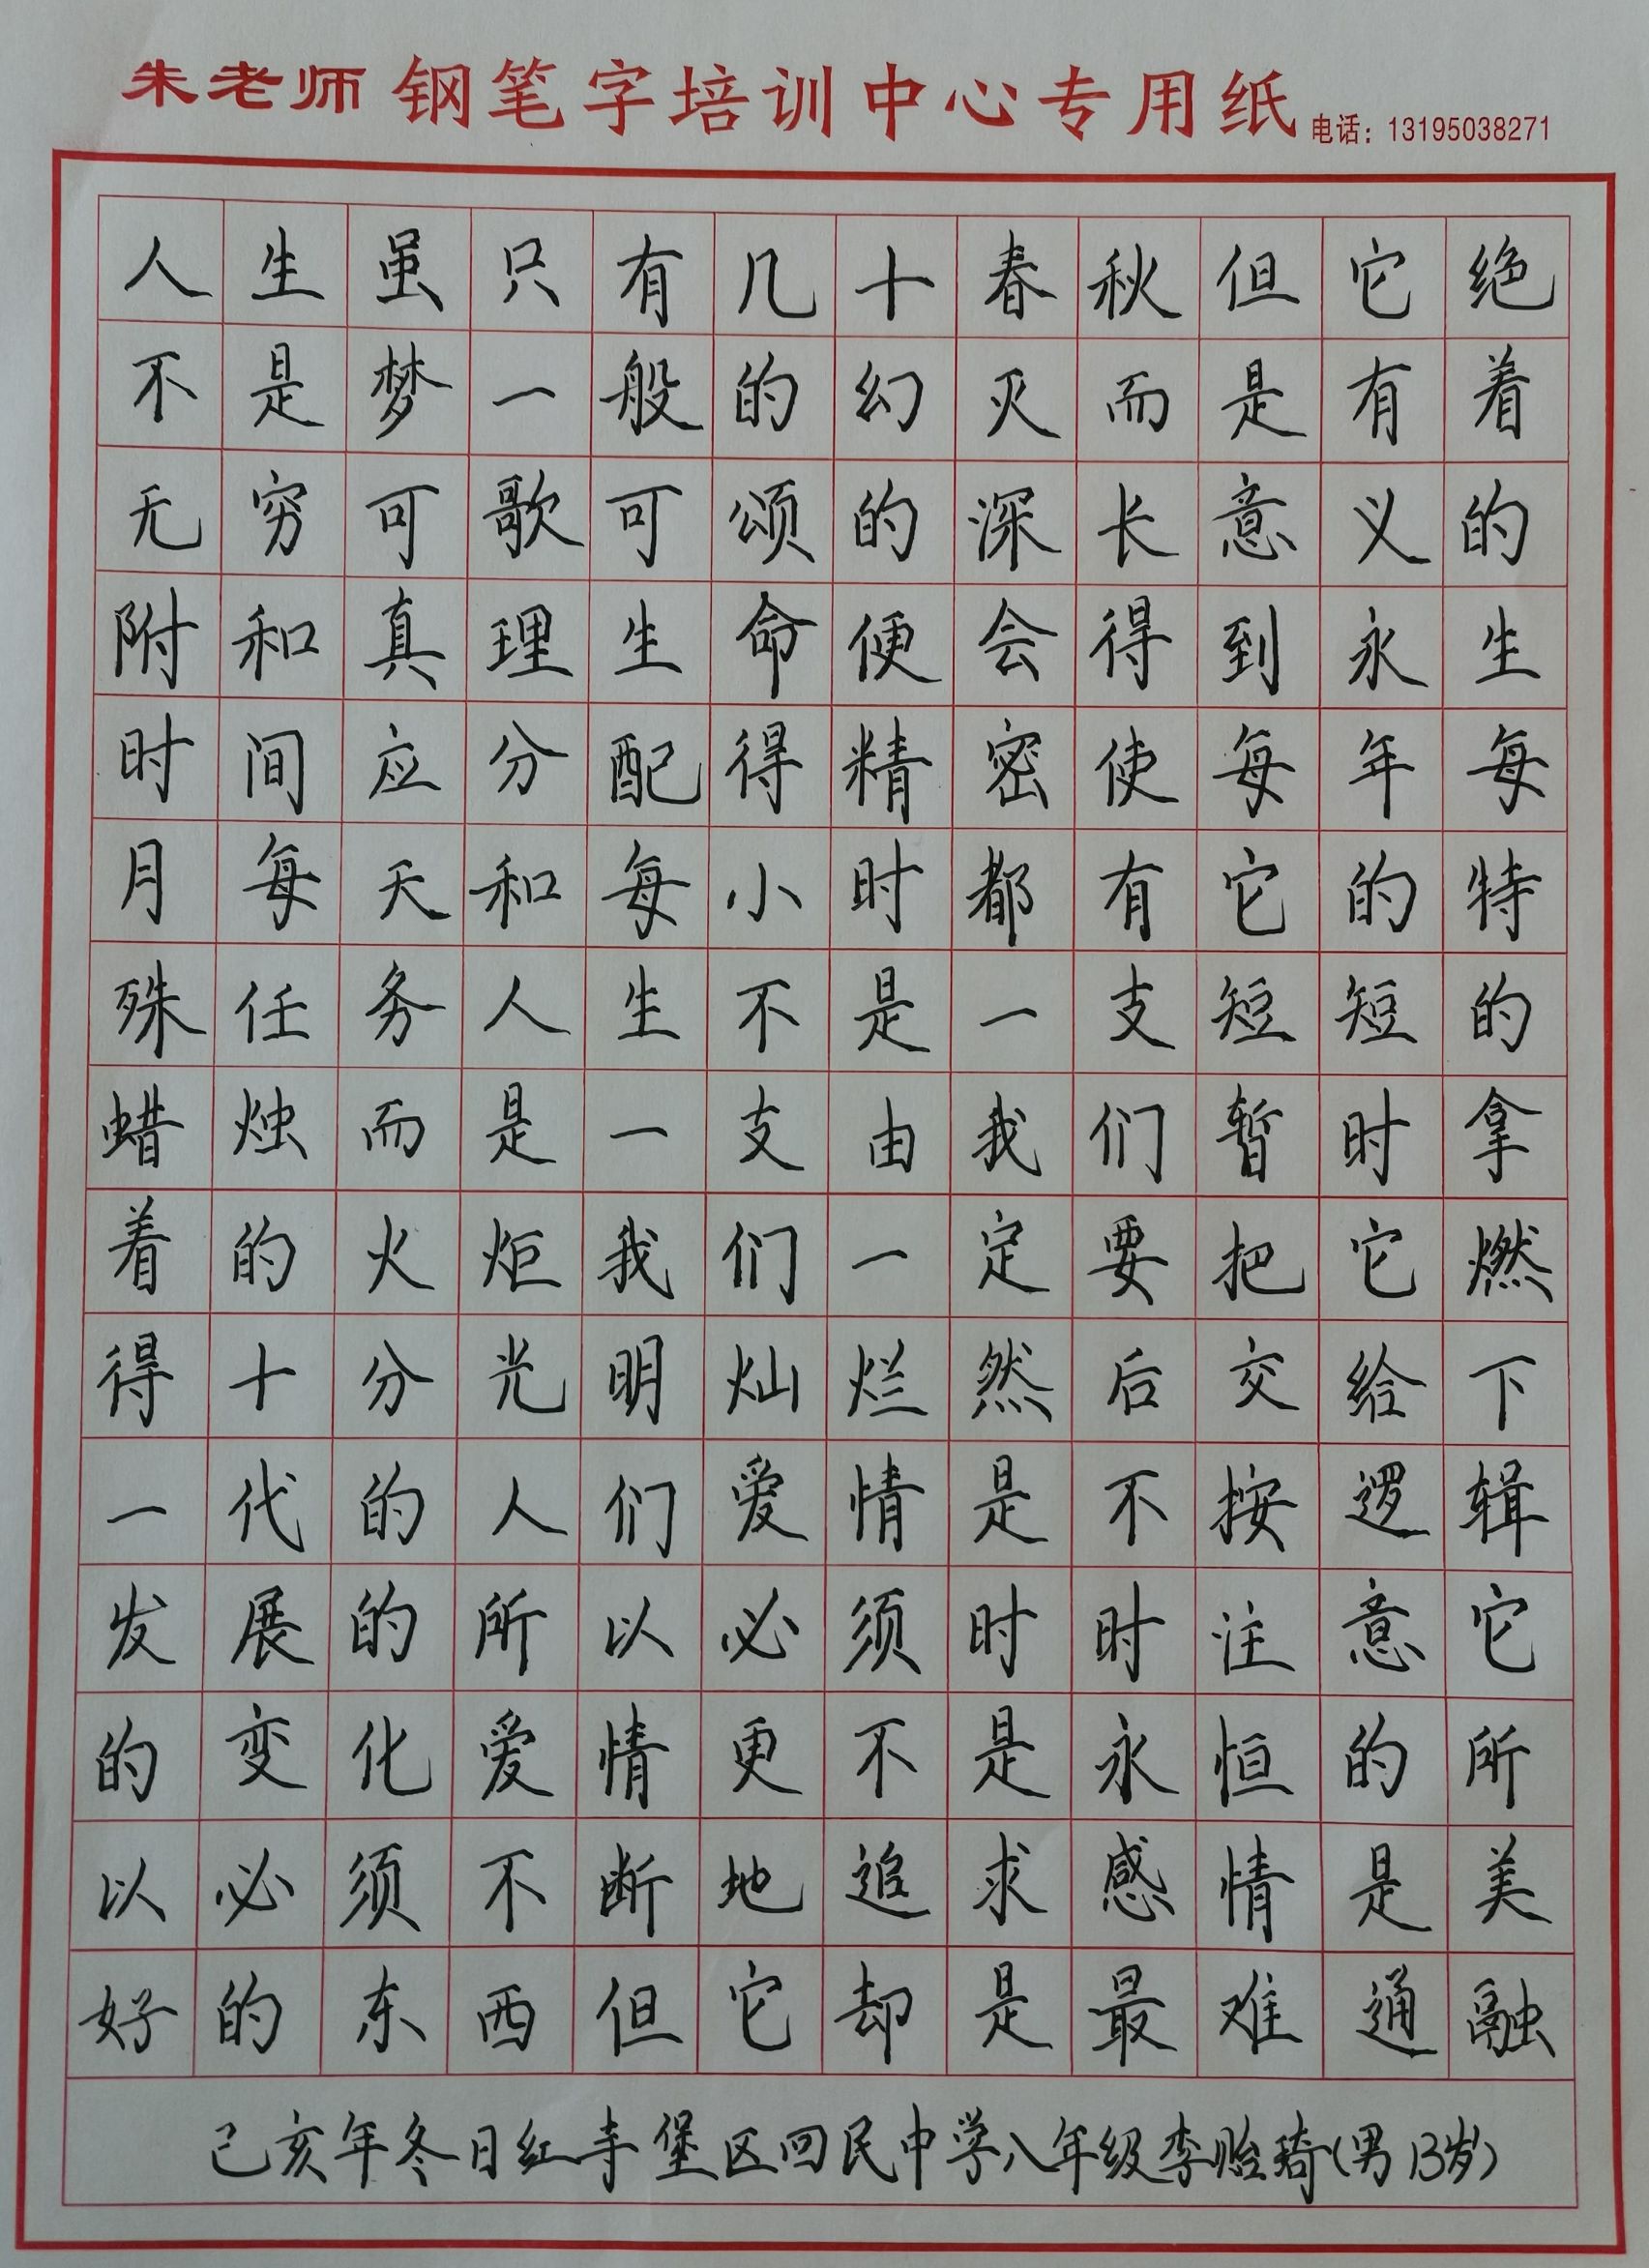 朱老师 钢笔字培训中心专用纸 电话：13195038271
人生虽只有几十春秋但它绝
不是梦一般的幻灭而是有着
无穷可歌可颂的深长意义的
附和真理生命便会得到永生
时间应分配得精密使每年每
月每天和每小时都有它的特
殊任务人生不是一支短短的
蜡烛而是一支由我们暂时拿
着的火炬我们一定要把它燃
得十分光明灿烂然后交给下
一代的人们爱情是不按逻辑
发展的所以必须时时注意它
的变化爱情更不是永恒的所
以必须不断地追求感情是美
好的东西但它却是最难通融
己亥年冬日红寺堡区回民中学八年级李贻琦(男13岁)